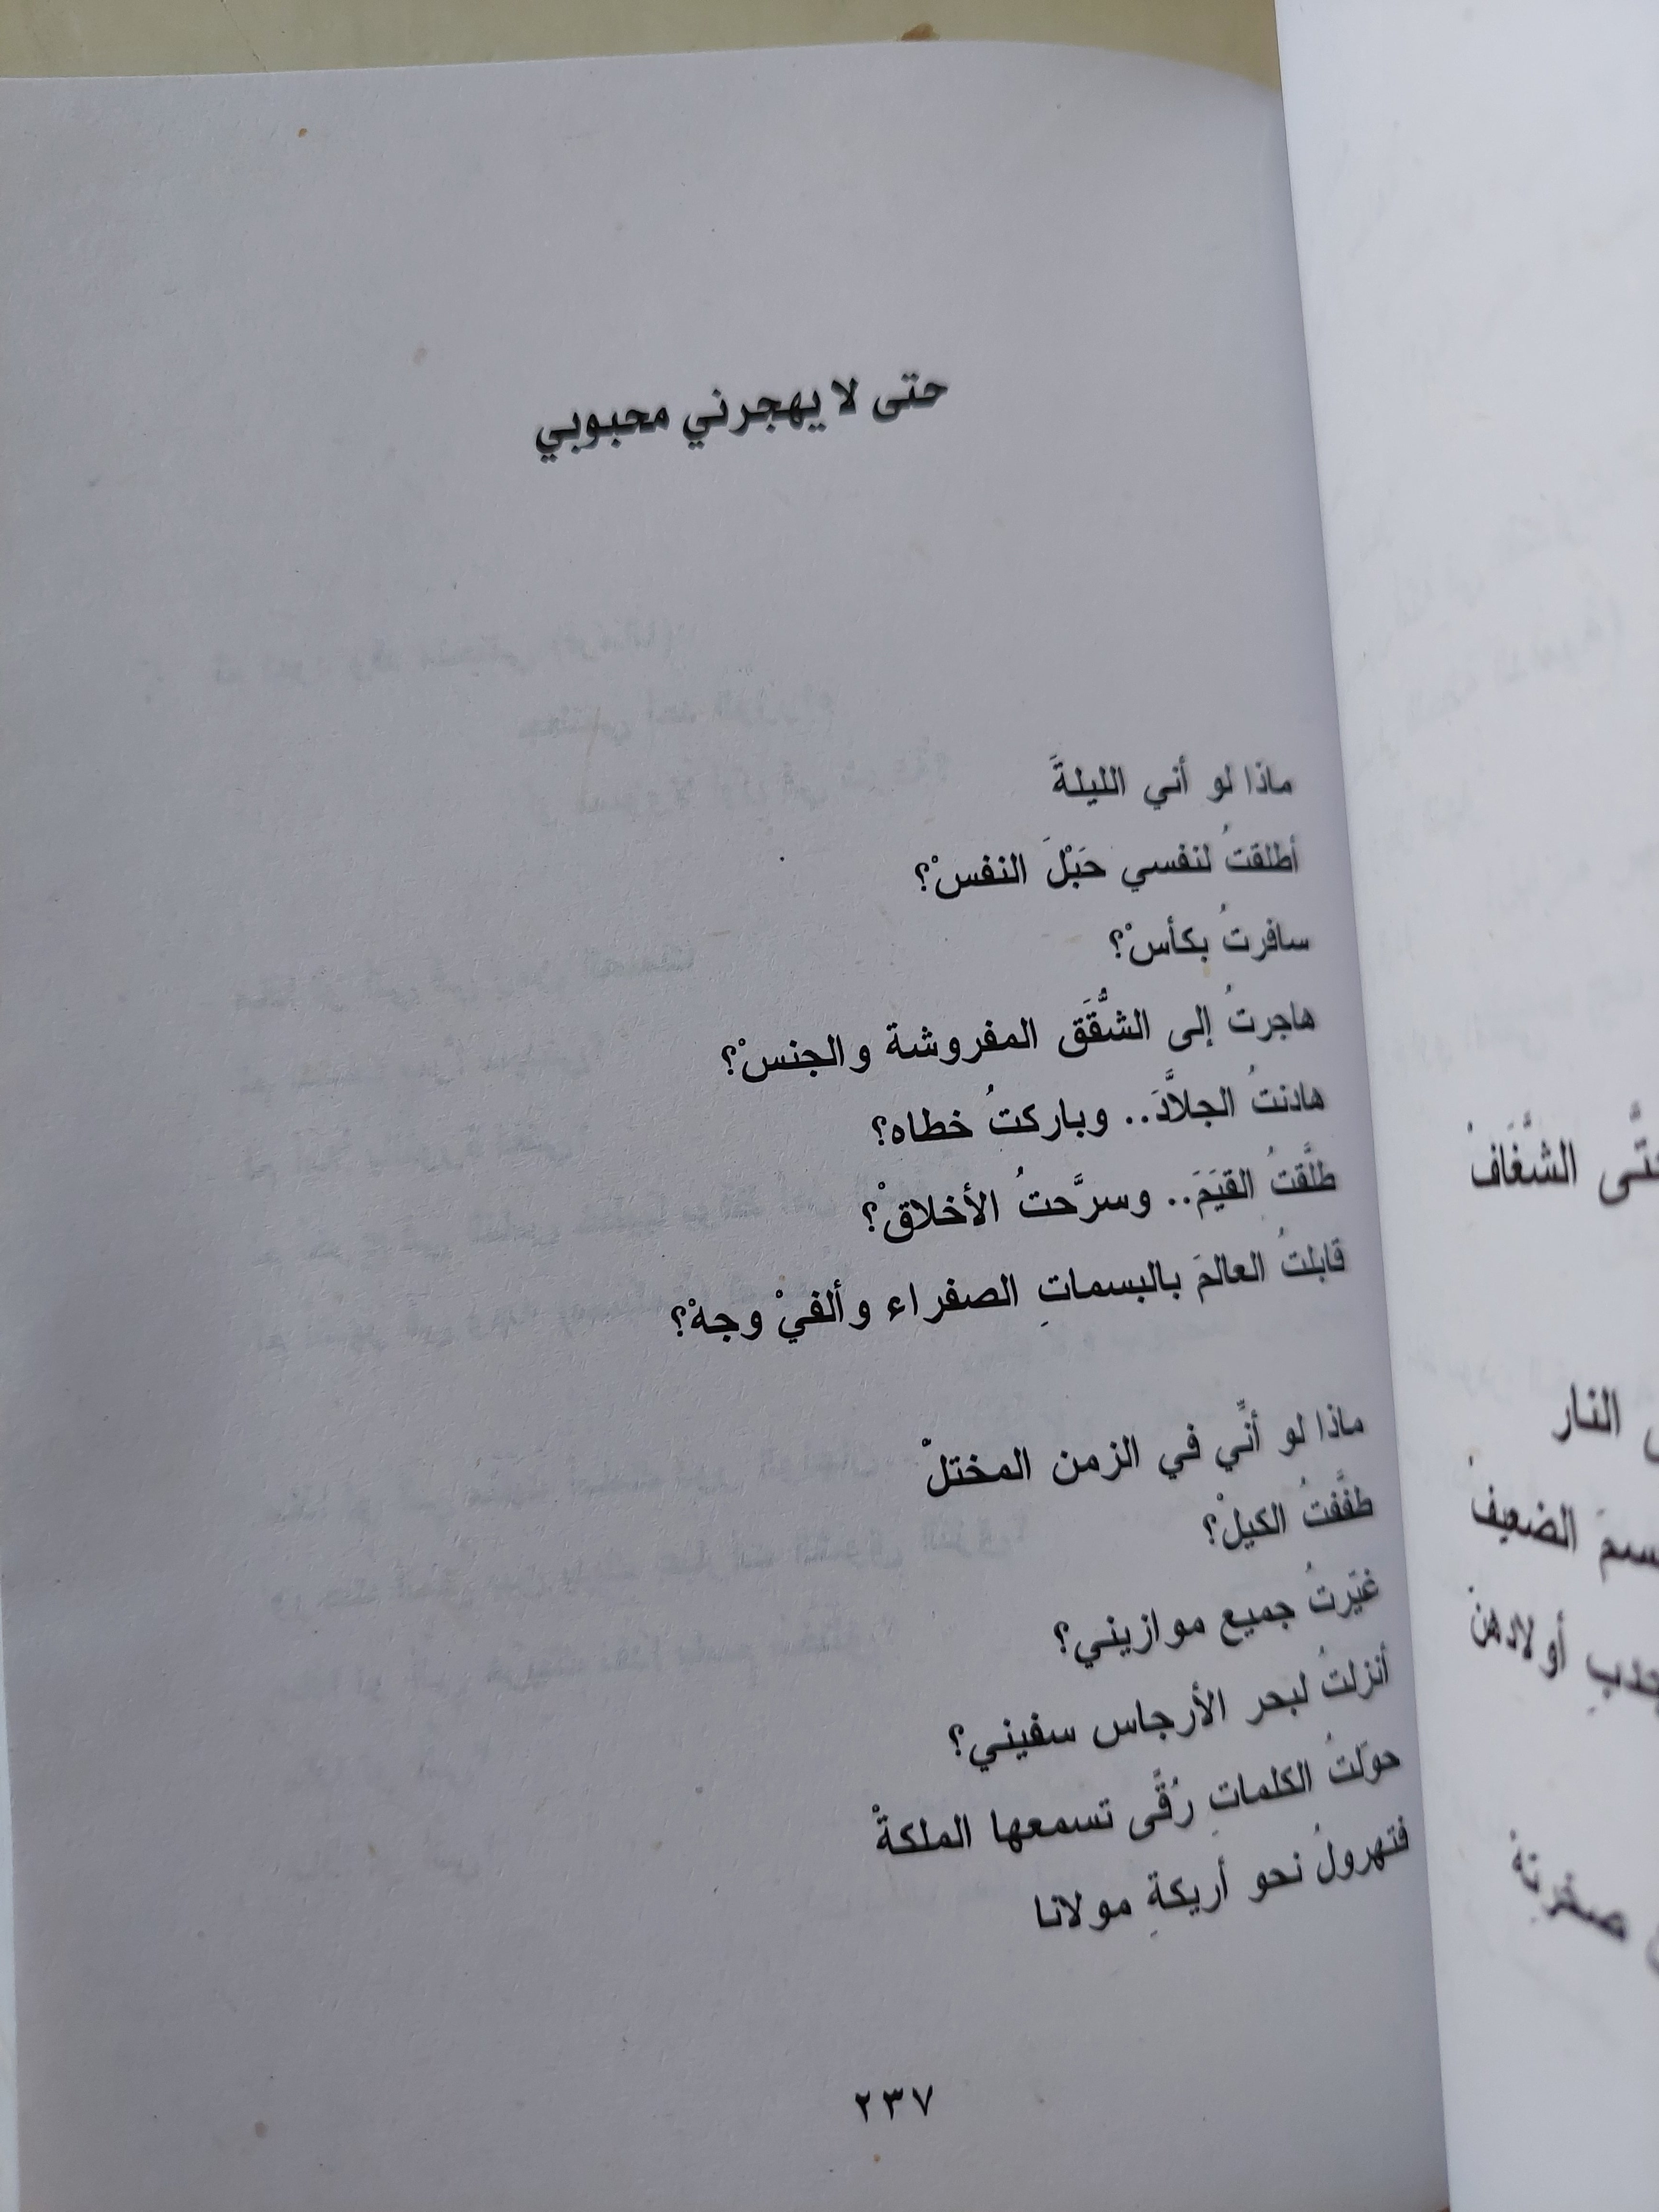 حتى لا يهجرني محبوبي
ماذا لو أني الليلةَ
أطلقتُ لنفسي حَبْلَ النفسْ؟
سافرتُ بكأسْ؟
هاجرتُ إلى الشُّقَق المفروشة والجنسْ؟
هادنتُ الجلاَّدَ.. وباركتُ خطاه؟
طلَّقتُ القيَمَ.. وسرَّحتُ الأخلاقْ؟
قابلتُ العالمَ بالبسماتِ الصفراء وألفيْ وجهْ؟
ماذا لو أنِّي في الزمن المختلْ
طفَّفتُ الكيلْ؟
غيّرتُ جميع موازيني؟
أنزلتُ لبحر الأرجاس سفيني؟
حوّلتُ الكلماتِ رُقًى تسمعها الملكةْ
فتهرولُ نحو أريكةِ مولانا
٢٣٧
الشَّغَافْ
النار
الضعيفْ
أولادهنْ